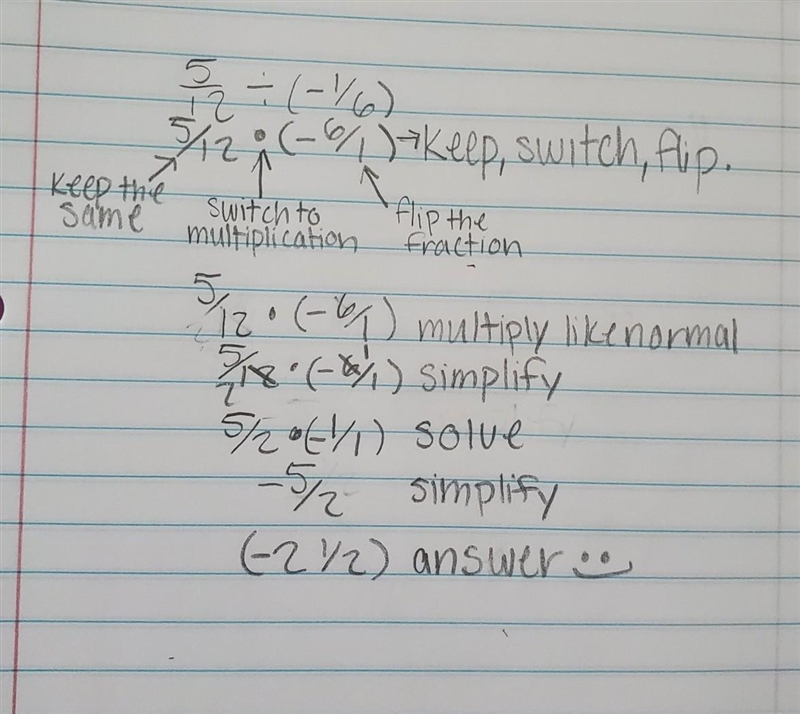 5/12 ÷ (-1/6)
5/12 • (-6/1) → Keep, switch, flip.
Keep the same
switch to multiplication
flip the fraction
5/12 • (-6/1) multiply like normal
5/12 2 • (-6/1 1) simplify
5/2 • (-1/1) solve
-5/2 simplify
(-2 1/2) answer :)